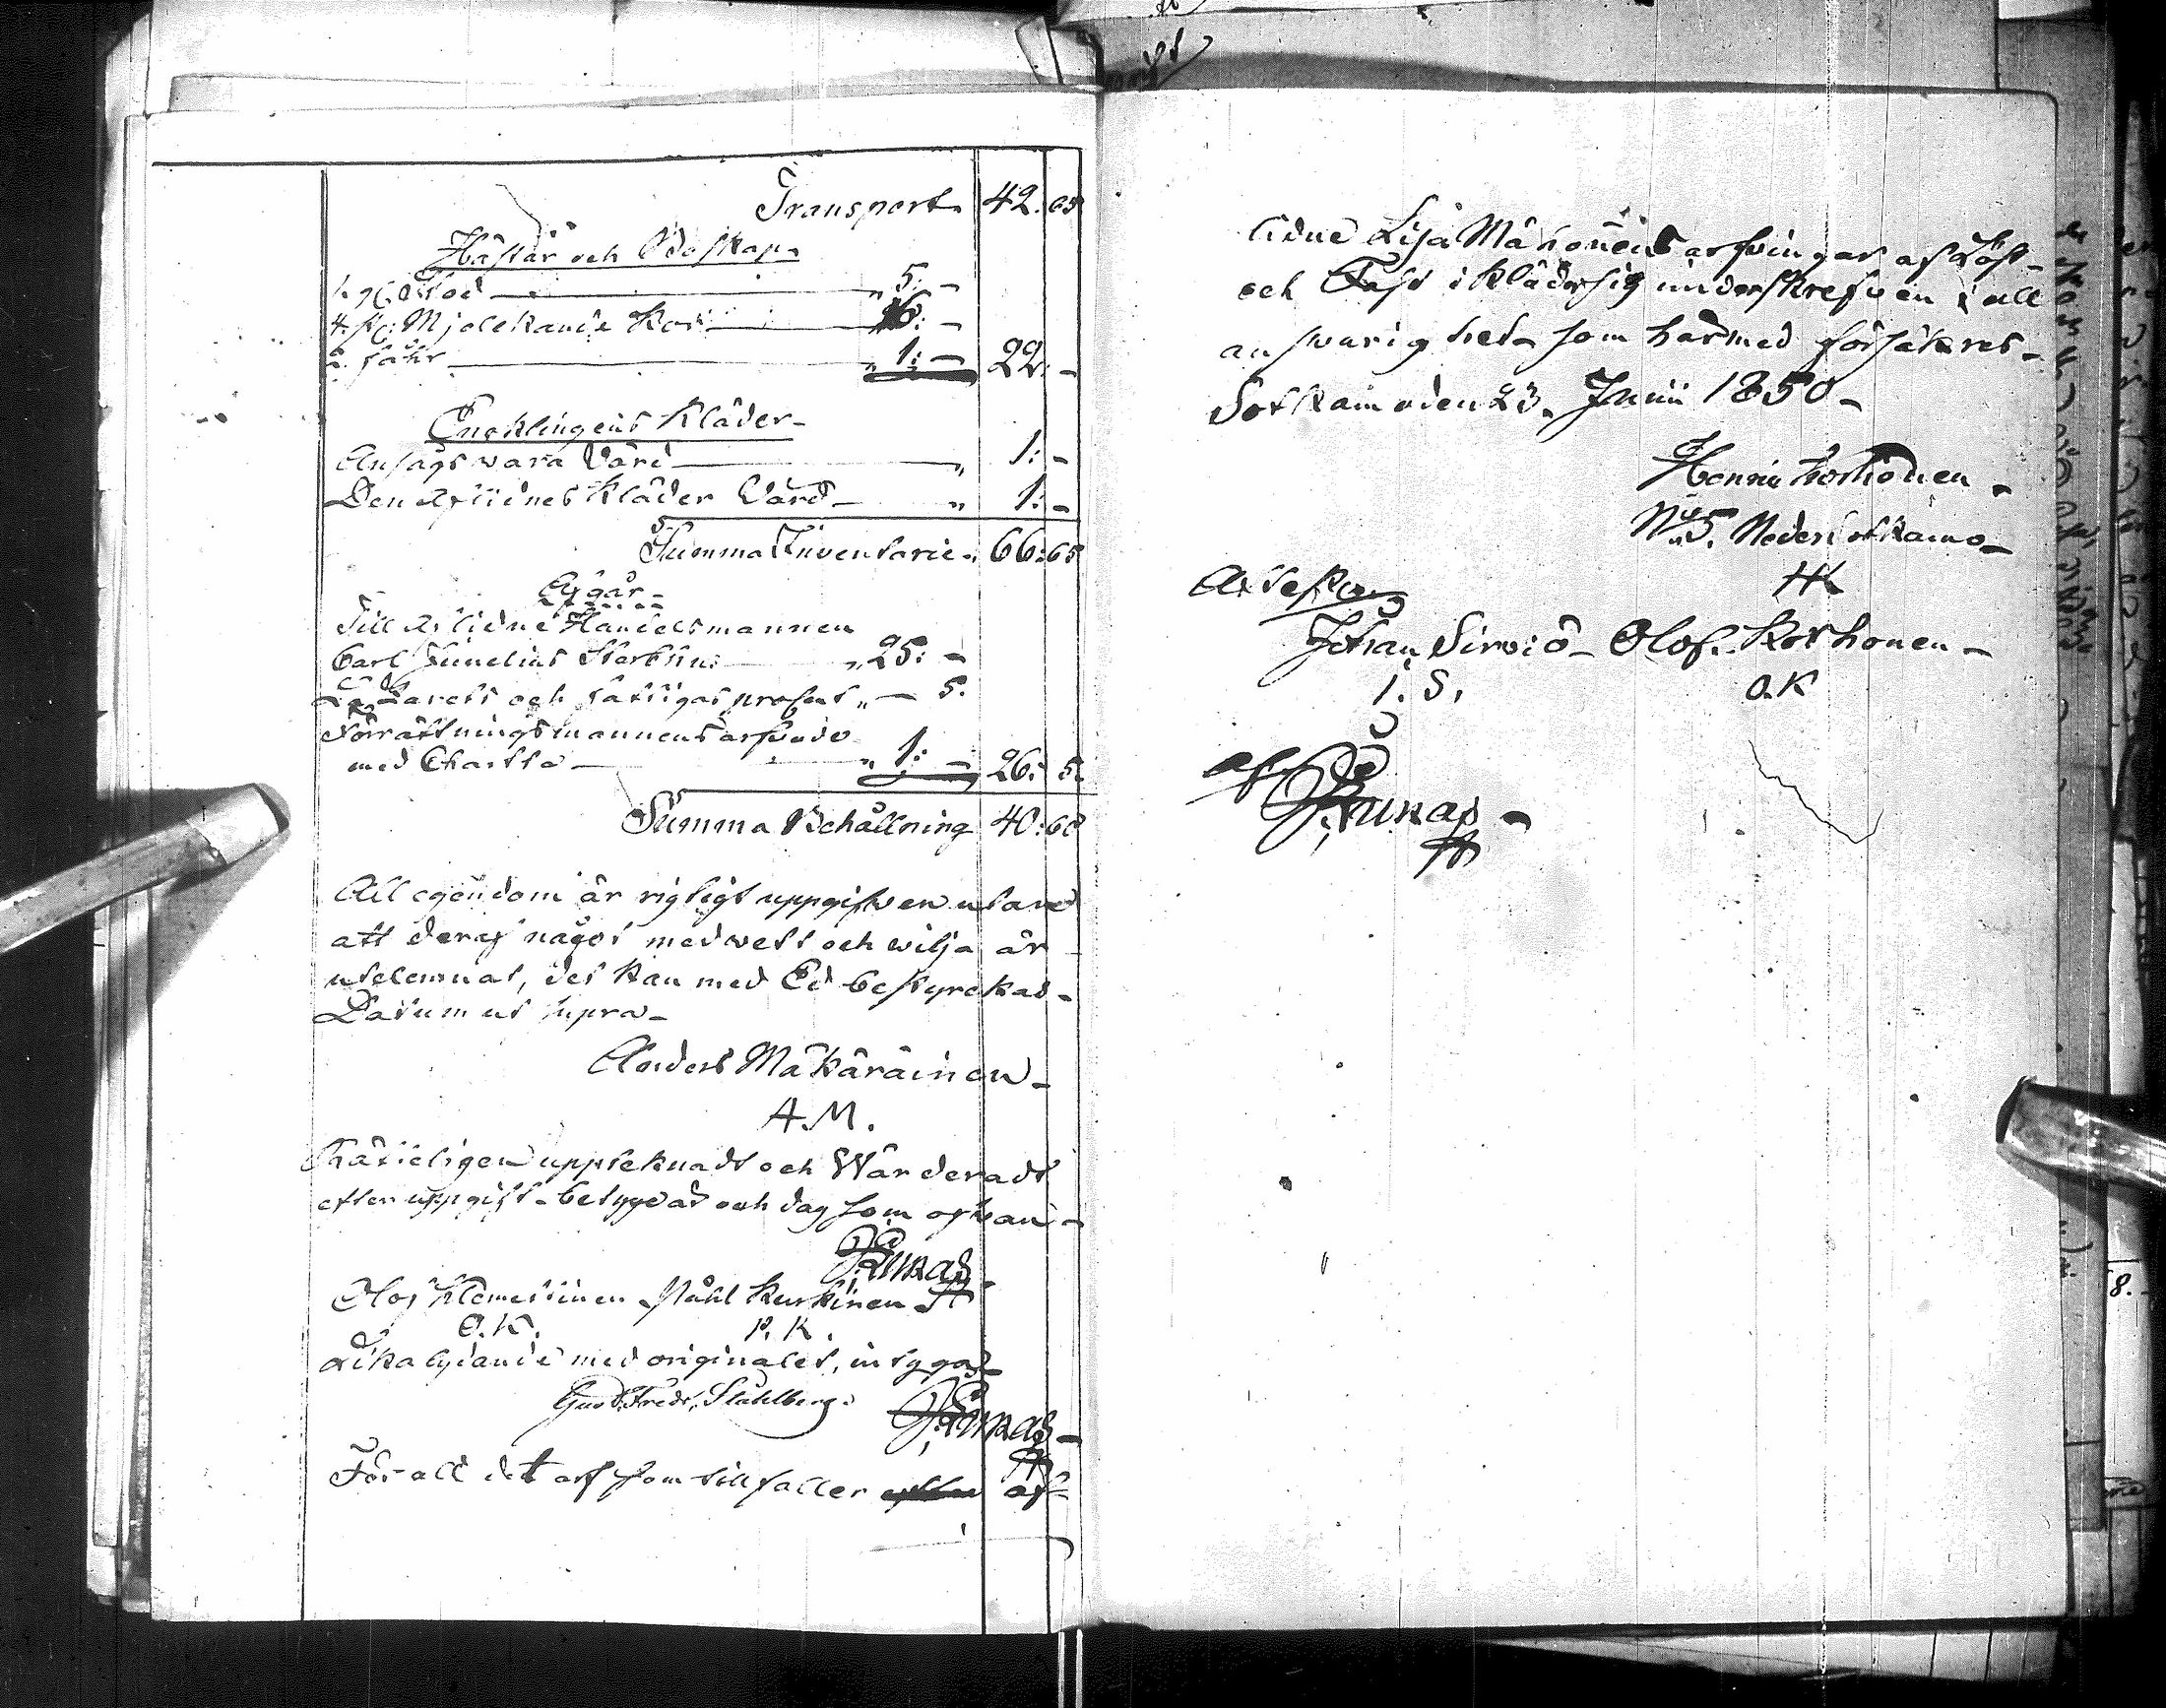 Transport 42. 65
Hästar och Boskap
1. gl. Stod " 5: -
4. st: Mjölkande Kor " 16: -
2. får " 1: - 22: -
Encklingens Kläder
Ansågs wara värd " 1: -
Den Aflidnes Kläder Värd " 1: -
Summa Inventarie. 66: 65
Afgår
Till Aflidne Handelsmannen
Carl Sterbhus " 25: -
Lazarets och fattigas procent " - 5.
Förrättningsmannens arfvode
med Chartta " 1: - 26: 5.
Summa Behållning 40: 60
All egendom är rigtigt uppgifwen utan
att deraf något med wett och wilja är
utelemnat, det kan med Ed bestyrckas
Datum ut supra
Anders Mäkäräinen
A.M.
upteknadt och Wärderadt
efter uppgift betygar och dag som ofwan
Olof Klemettinen Påhl Kurkinen
O.K. P.K.
Lika lydande med originalet, intygas
Gust. Fredr. Ståhlberg.
För all det arf som tillfaller af-
lidne Lisa Mähönens arfvingar af Löst
och Fast ikläder sig underskrefven i all
answarighet som härmed försäkras
Sotkamo den 23. Junii 1850
Henric Korhonen
No 5. Neder Sotkamo
HK
Attestera
Johan Sirviö Olof Korhonen
I. S. O.K
af